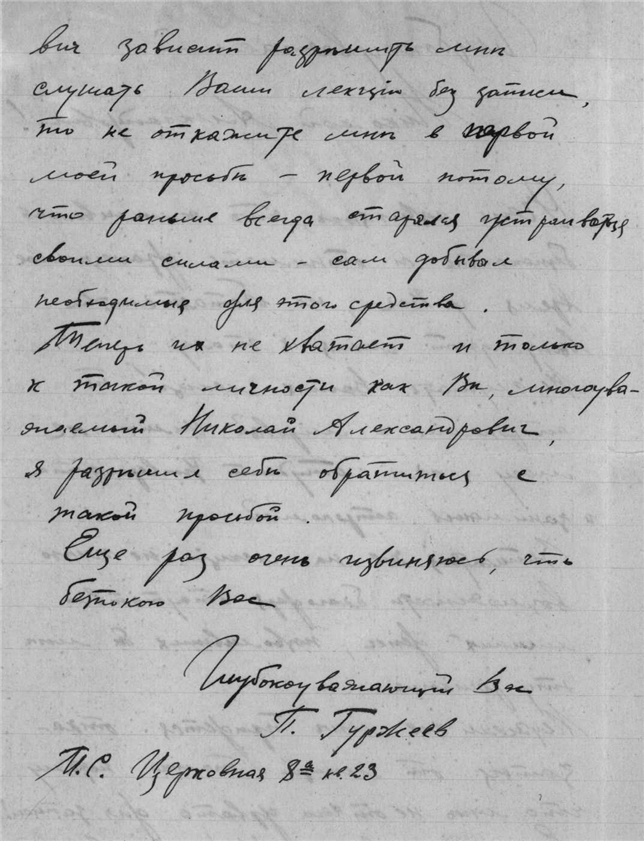 вич зависит разрѣшить мнѣ
слушать Ваши лекціи без записи,
то не откажите мнѣ в первой
моей просьбѣ – первой потому,
что раньше всегда старался устраиваться
своими силами – сам добывал
необходимыя для этого средства.
Теперь их не хватает и только
к такой личности как Вы, многоува-
жаемый Николай Александрович,
я разрѣшил себѣ обратиться с
такой просьбой.
Еще раз очень извиняюсь, что
безпокою Вас
Глубокоуважающий Вас
П. Гуржеев
П.С. Церковная 8а кв. 23